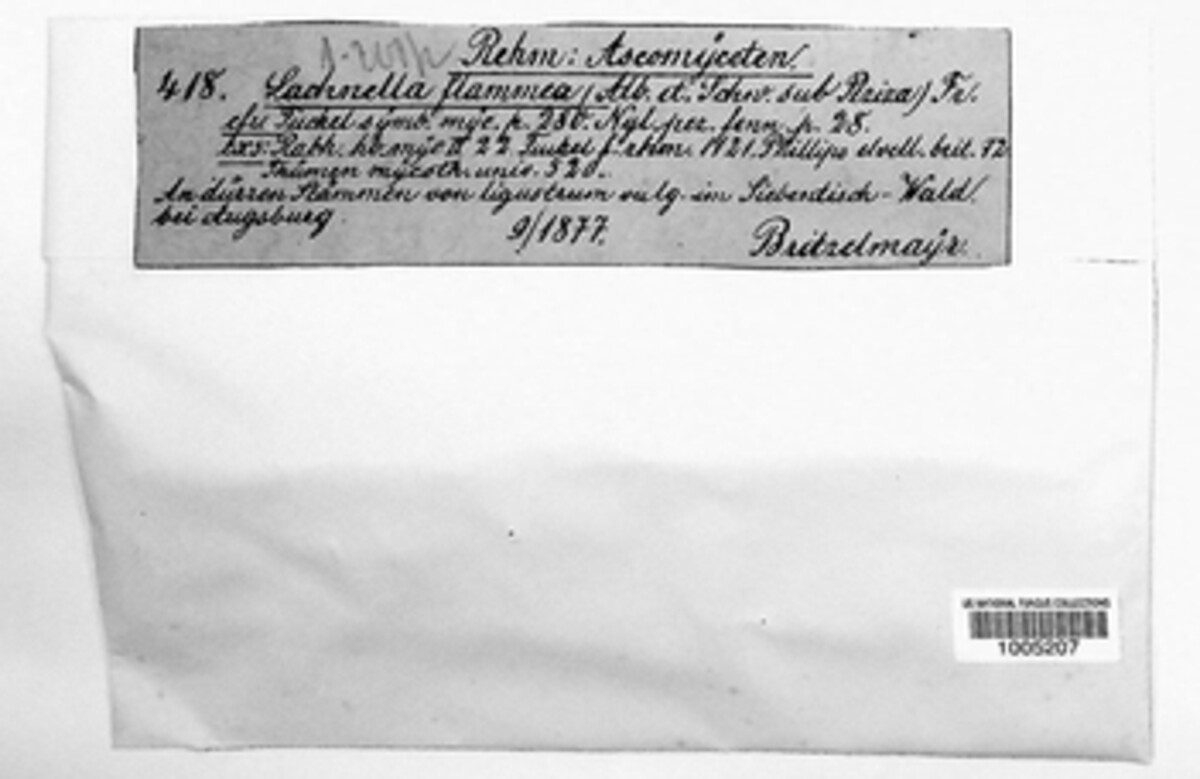 Rehm: Ascomyceten.
418. Lachnella flammea (Alb. et. Schw. sub Peziza) Fr.
cfr. Fuckel symb. myc. p. 280. Nyl. pez. fenn. p. 28.
Exs: Rabh. hb. myc. II 22. Fuckel f. rhen. 1921. Phillips elvell. brit. 72
Thümen mycoth. univ. 320.
An dürren Stämmen von Ligustrum vulg. im Siebentisch-Wald
bei Augsburg.
9/1877.
Britzelmayr.
US NATIONAL FUNGUS COLLECTIONS
1005207